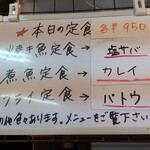 ★本日の定食 各¥950
焼き魚定食→塩サバ
煮魚定食→カレイ
フライ定食→バトウ
の他色々あります。メニューをご覧下さい